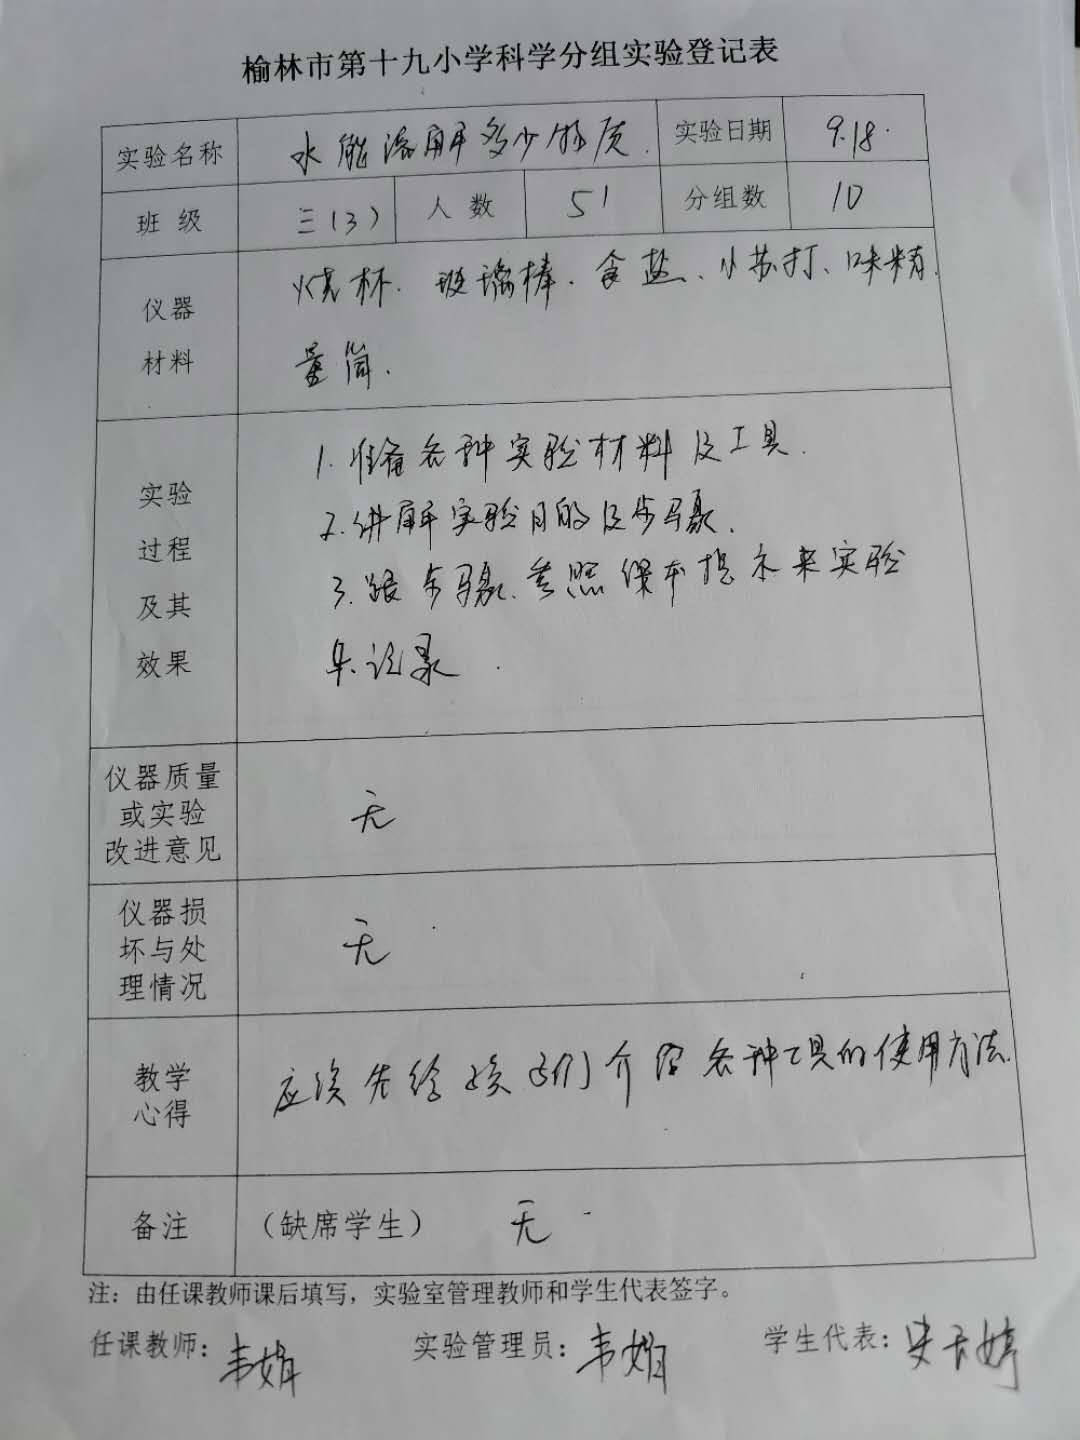 榆林市第十九小学科学分组实验登记表
实验名称 水能溶解多少物质. 实验日期 9.18.
班 级 三(3) 人 数 51 分组数 10
仪器
材料
烧杯. 玻璃棒. 食盐、小苏打、味精.
量筒.
实验
过程
及其
效果
1. 准备各种实验材料及工具.
2. 讲解实验目的及步骤.
3. 跟步骤. 参照课本提示来实验
4. 记录.
仪器质量
或实验
改进意见
无
仪器损
坏与处
理情况
无
教学
心得
应该先给孩子们介绍各种工具的使用方法.
备注 (缺席学生) 无
注：由任课教师课后填写，实验室管理教师和学生代表签字。
任课教师：韦娟 实验管理员：韦娟 学生代表：婷